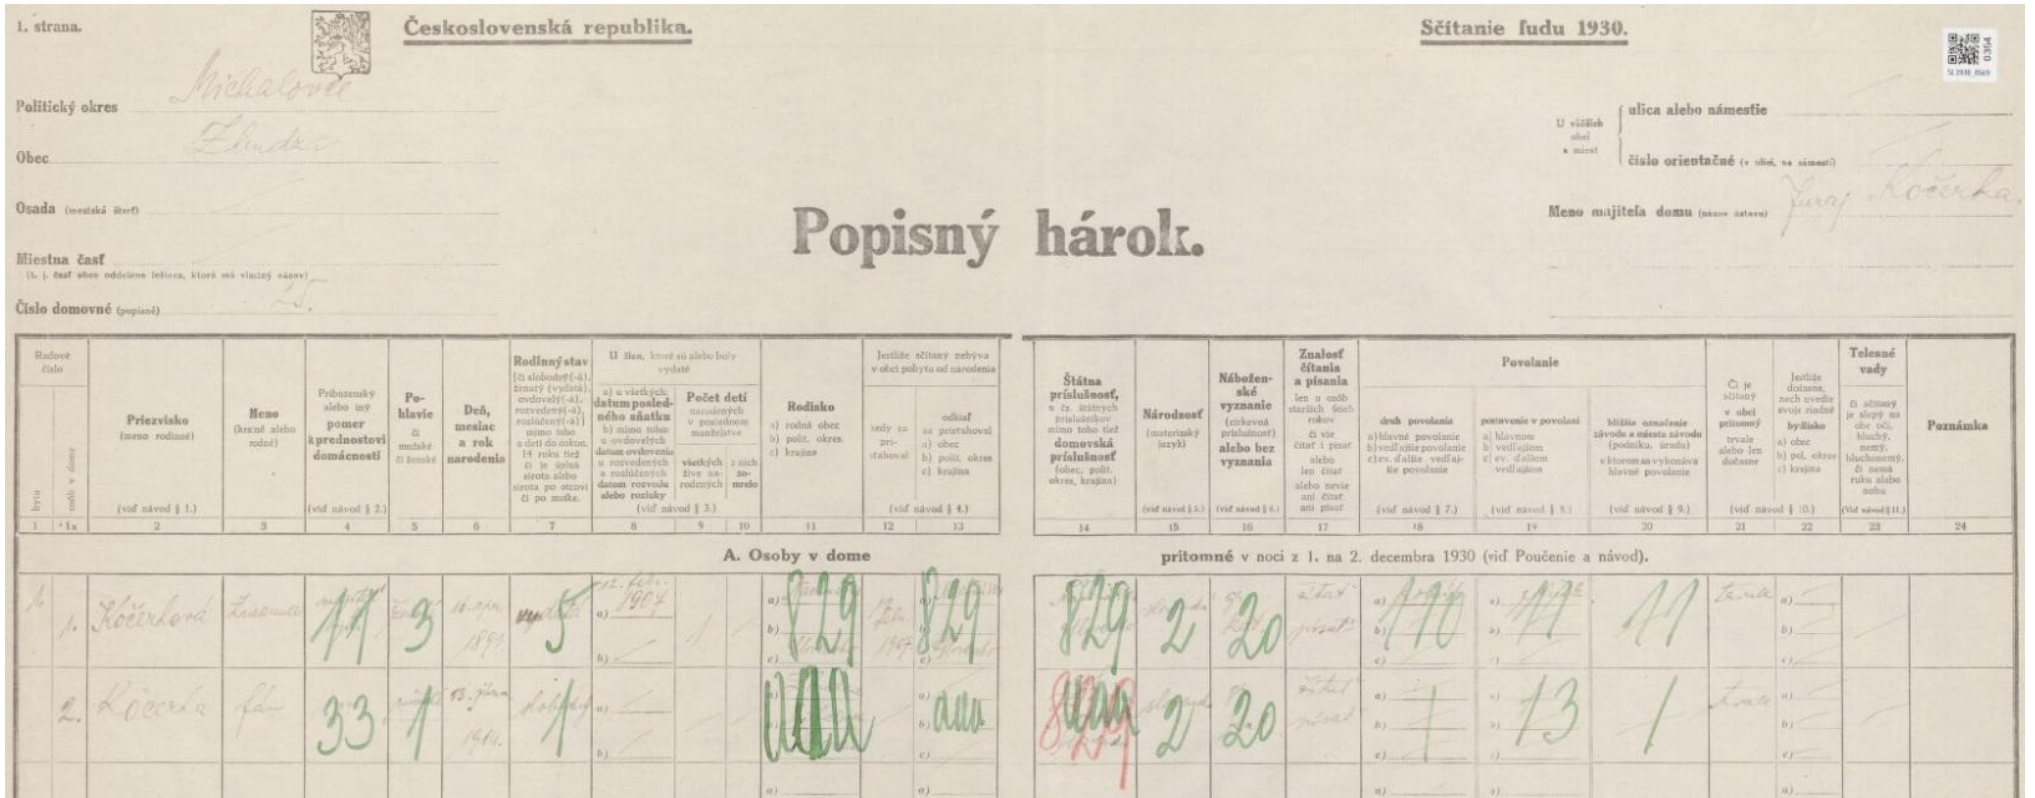 1. strana.
Československá republika.
Sčítanie ľudu 1930.
0364
Politický okres Michalovce
Obec Zbudza
Osada (mestská štvrť)
Miestna časť
(t. j. časť obce oddelene ležiaca, ktorá má vlastný názov)
Číslo domovné (popisné) 25.
U väčších obcí a miest
ulica alebo námestie
číslo orientačné (v ulici, na námestí)
Meno majiteľa domu (názov ústavu) Juraj Kočerha.
Popisný hárok.
Radové číslo
bytu
osôb v dome
Priezvisko
(meno rodinné)
(viď návod § 1.)
Meno
(krstné alebo rodné)
Príbuzenský alebo iný pomer k prednostovi domácnosti
(viď návod § 2.)
Pohlavie
či mužské či ženské
Deň, mesiac a rok narodenia
Rodinný stav
[či slobodný(-á), ženatý (vydatá), ovdovelý(-á), rozvedený(-á), rozlúčený(-á)]
mimo toho u detí do dokon. 14 roku tiež či je úplná sirota alebo sirota po otcovi či po matke.
U žien, ktoré sú alebo boly vydaté
a) u všetkých: datum posledného sňatku
b) mimo toho: u ovdovelých datum ovdovenia u rozvedených a rozlúčených datum rozvodu alebo rozluky
Počet detí
narodených v poslednom manželstve
všetkých žive narodených
z nich zomrelo
(viď návod § 3.)
Rodisko
a) rodná obec
b) polit. okres
c) krajina
Jestliže sčítaný nebýva v obci pobytu od narodenia
kedy sa prisťahoval
odkiaľ sa prisťahoval
a) obec
b) polit. okres
c) krajina
(viď návod § 4.)
Štátna príslušnosť,
u čs. štátnych príslušníkov mimo toho tiež
domovská príslušnosť
(obec, polit. okres, krajina)
Národnosť
(materinský jazyk)
(viď návod § 5.)
Náboženské vyznanie
(cirkevná príslušnosť)
alebo bez vyznania
(viď návod § 6.)
Znalosť čítania a písania
len u osôb starších 6tich rokov
či vie čítať i písať alebo len čítať alebo nevie ani čítať ani písať
Povolanie
druh povolania
a) hlavné povolanie
b) vedľajšie povolanie
c) ev. ďalšie vedľajšie povolanie
(viď návod § 7.)
postavenie v povolaní
a) hlavnom
b) vedľajšom
c) ev. ďalšom vedľajšom
(viď návod § 8.)
bližšie označenie závodu a miesta závodu
(podniku, úradu)
v ktorom sa vykonáva hlavné povolanie
(viď návod § 9.)
Či je sčítaný v obci prítomný trvale alebo len dočasne
Jestliže dočasne, nech uvedie svoje riadne bydlisko
a) obec
b) pol. okres
c) krajina
(viď návod § 10.)
Telesné vady
či sčítaný je slepý na obe oči, hluchý, nemý, hluchonemý, či nemá ruku alebo nohu
(Viď návod § 11.)
Poznámka
1 1a 2 3 4 5 6 7 8 9 10 11 12 13 14 15 16 17 18 19 20 21 22 23 24
A. Osoby v dome prítomné v noci z 1. na 2. decembra 1930 (viď Poučenie a návod).
1. 1. Kočerhová Zuzanna 11 3 1891 vydatá 5 a) 12. febr. 1907 b) 1 a) b) c) 829 1907 a) b) c) 829 829 2 20 čítať písať a) b) c) 110 a) b) c) 11 11 trvale a) b) c)
2. Kočerha Ján 33 1 13. 1914. slobodný 1 a) b) a) b) c) 829 2 20 čítať písať a) b) c) 1 a) b) c) 13 1 trvale a) b) c)
a) a) a) a) a)